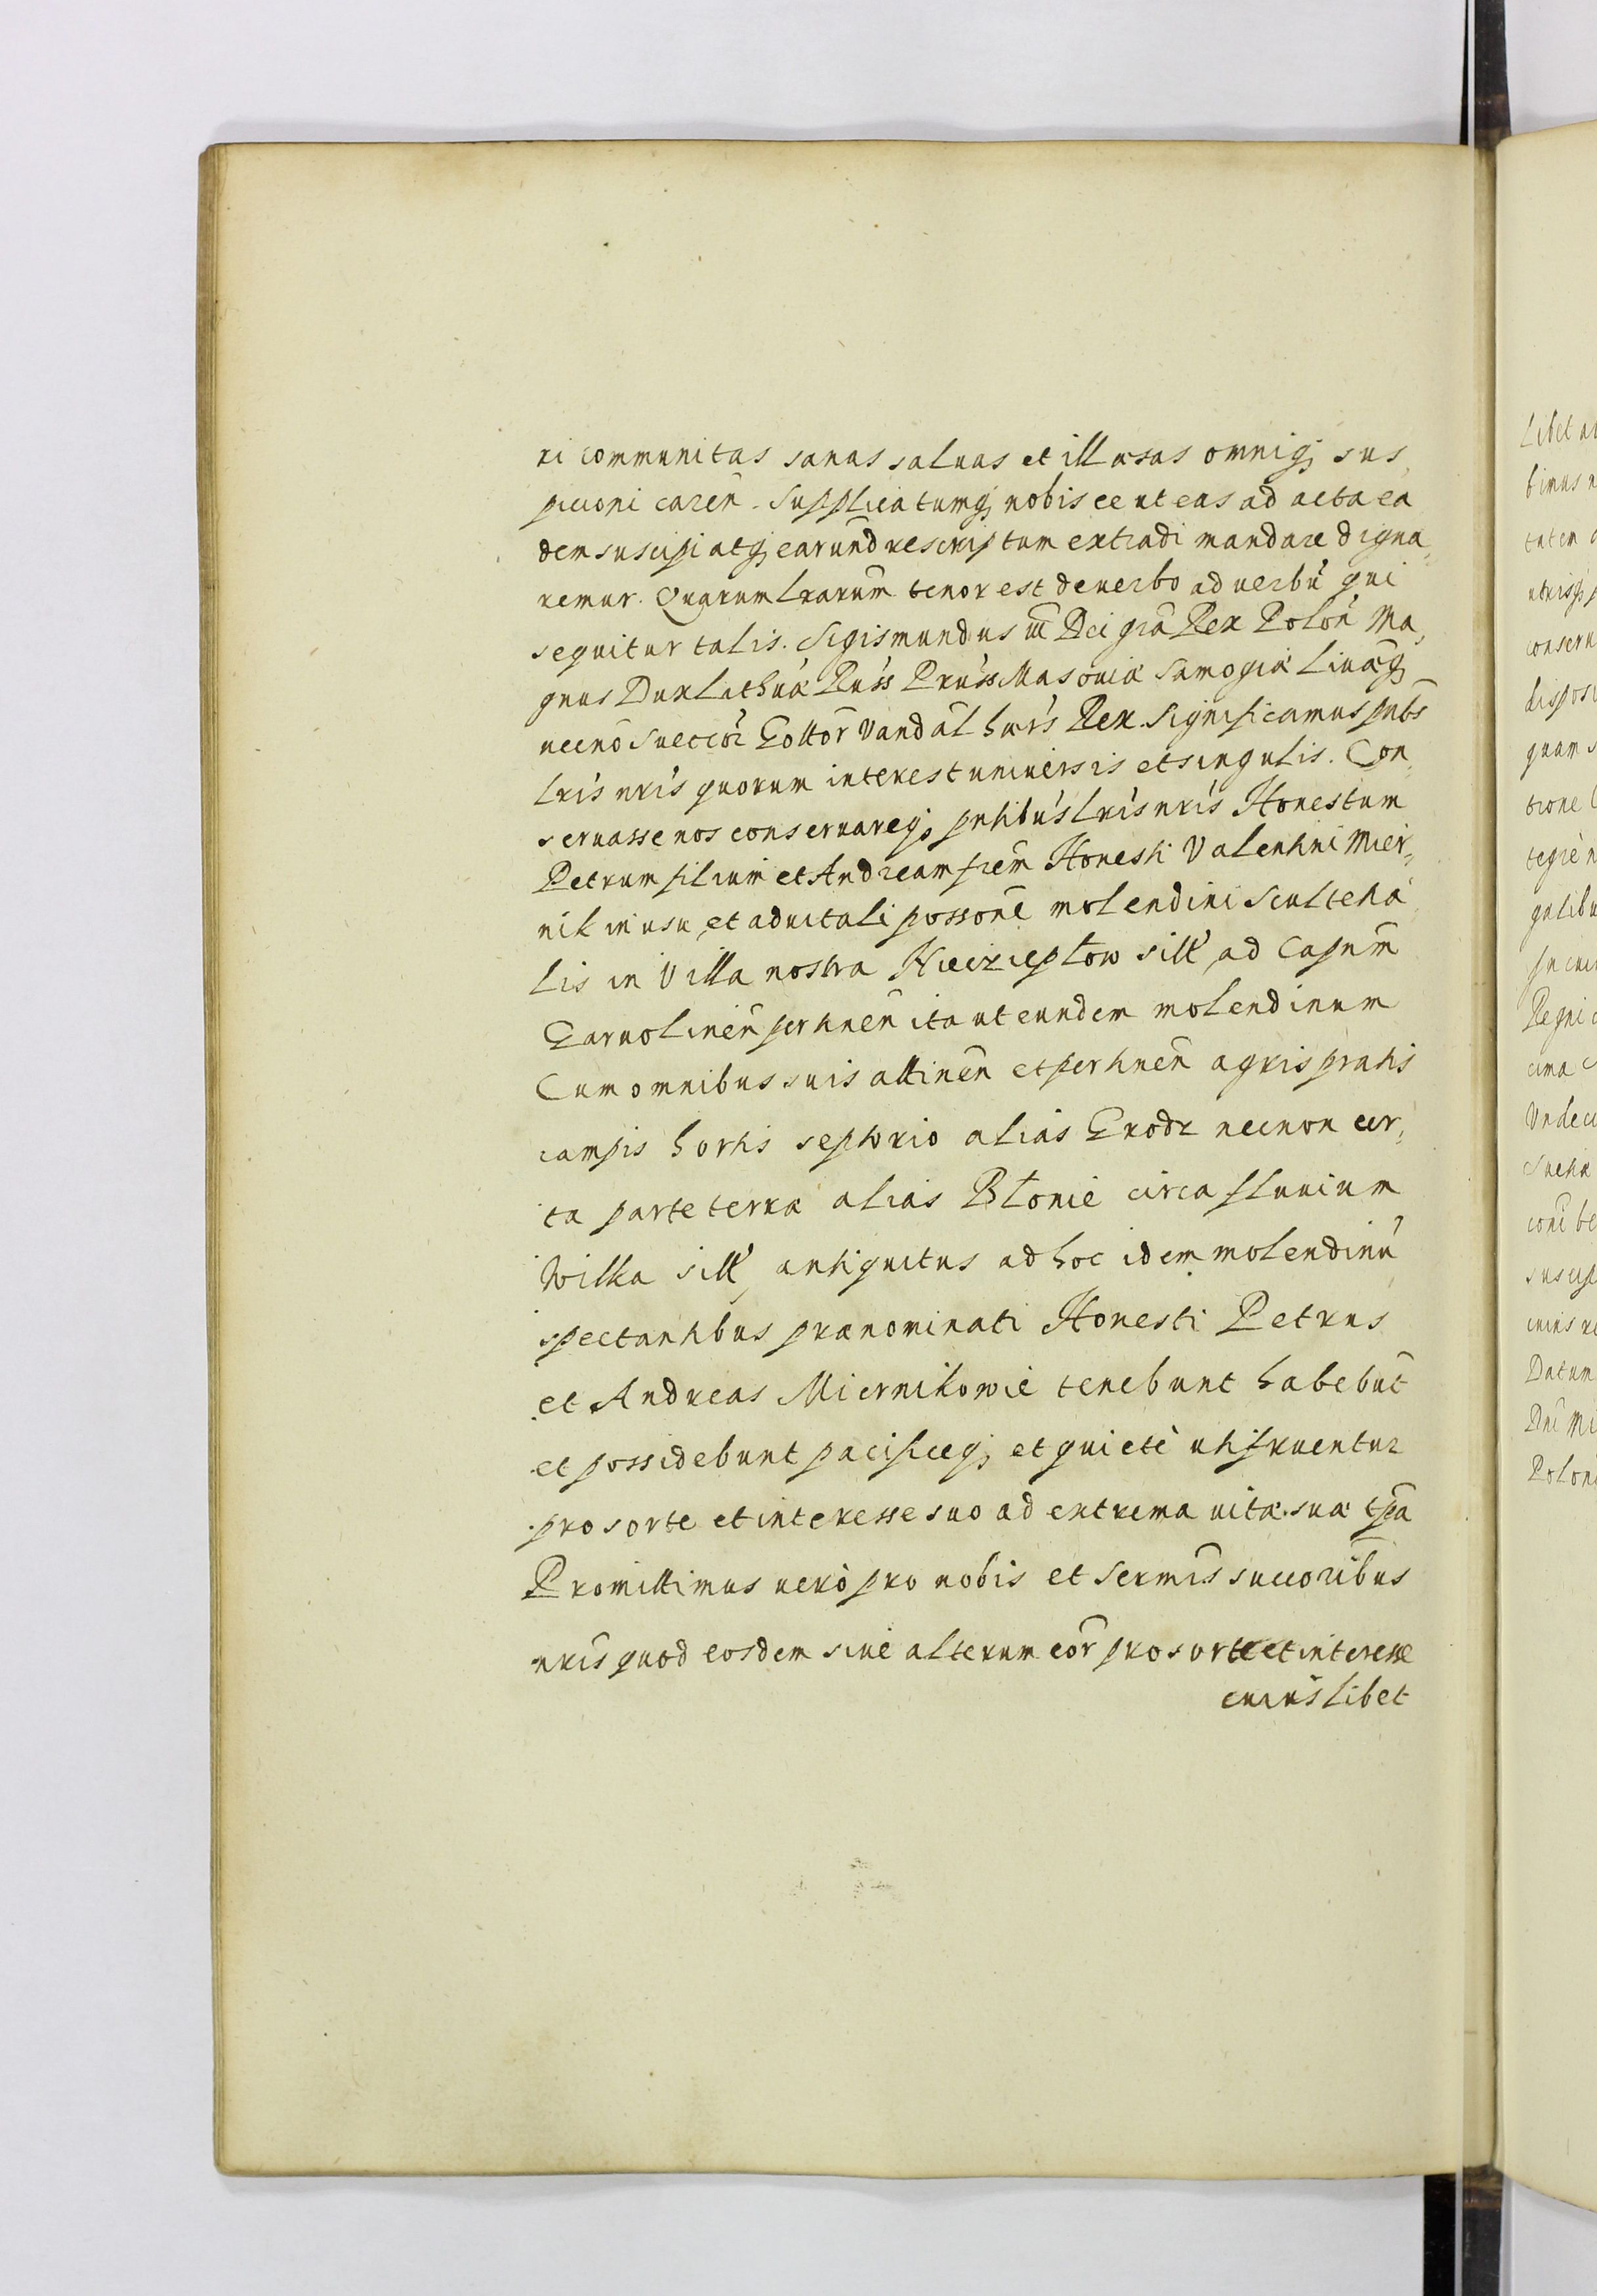 ri communitas sanas saluas et illæsas omniq; sus,
picioni careñ. Supplicatumq; nobis ee ut eas ad acta ea
dem suscipi atq; earund rescriptum extradi mandare digna,
remur. Quarum lrarum tenor est de uerbo ad uerbú qui
sequitur talis. Sigismundus iii Dei gra Rex Polon Ma,
gnus Dux Lithuæ Russ Pruss Masouiæ Samogiæ Liuæq;
necnõ Suecor Gottor Vandal hærs Rex. Significamus pntbs
lris nris quorum interest uniuersis et singulis. Con,
seruasse nos conseruareq; pntibus lris nris Honestum
Petrum filium et Andream frem Honesti Valentini Mier,
nik in usu et aduitali possone molendini Scultetia
lis in Villa nostra Niecieplow sitt ad Capnm
Garuolineñ pertineñ ita ut eundem molendinum
Cum omnibus suis attineñ et pertineñ agris pratis
campis hortis septorio alias Grodz necnon cer,
ta parte terræ alias Błonie circa fluuium
Wilka sitt antiquitus ad hoc idem molendinú
spectantibus prænominati Honesti Petrus
et Andreas Miernikowie tenebunt habebut
et possidebunt pacificeq; et quietè utifruentur
pro sorte et interesse suo ad extrema uitæ suæ tpa
Promittimus uerò pro nobis et Sermis succoribus
nris quod eosdem siue alterum eor pro sorte et interesse
cuius libet